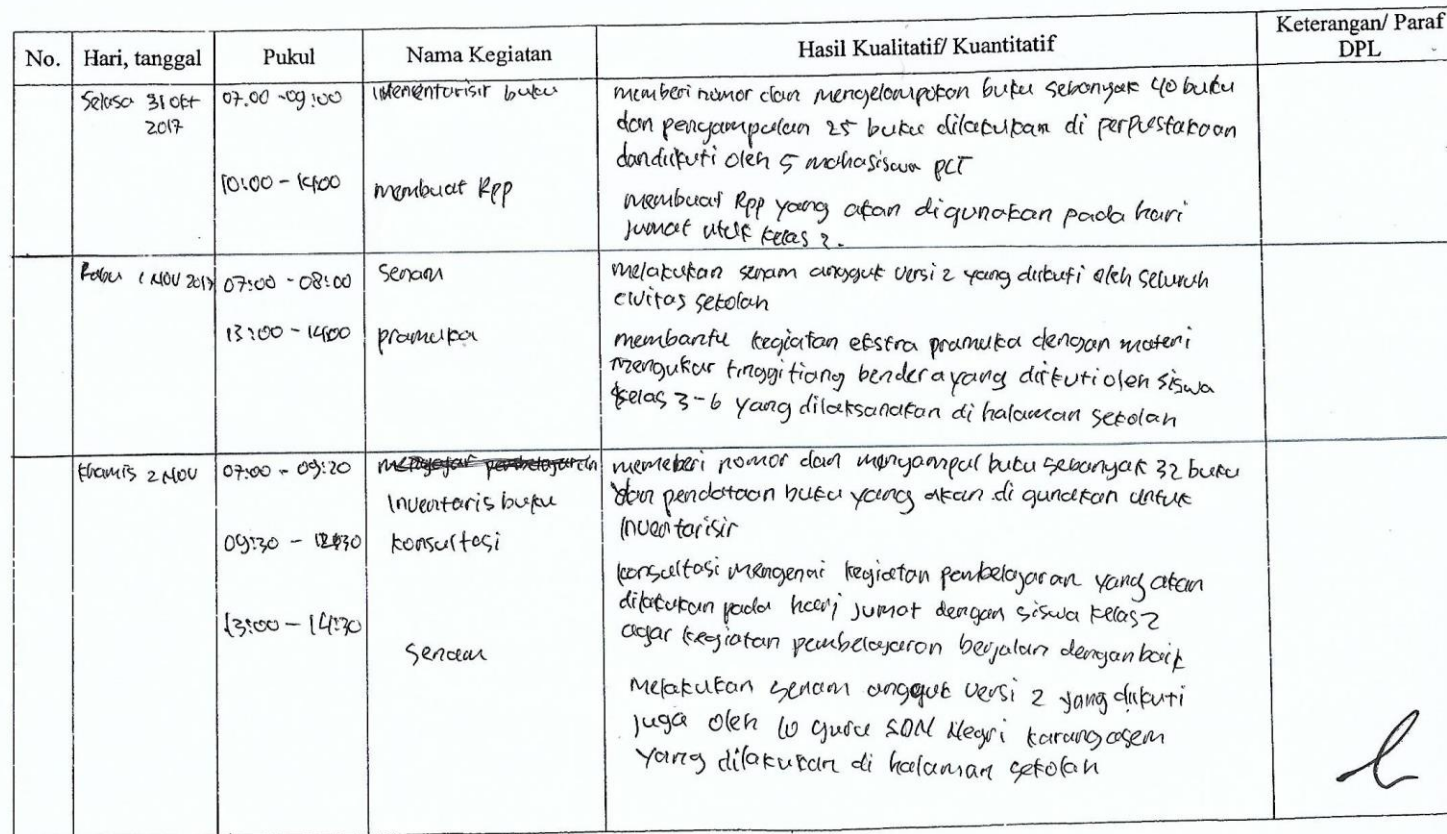 No. Hari, tanggal Pukul Nama Kegiatan Hasil Kualitatif/ Kuantitatif Keterangan/ Paraf
DPL
Selasa 31 Okt 07.00 - 09:00 buku memberi nomor dan mengelompokan buku sebanyak 40 buku
2017 dan penyampulan 25 buku dilakukan di perpustakaan
dandiikuti oleh 5 mahasiswa PLT
10:00 - 14:00 membuat Rpp membuat Rpp yang akan digunakan pada hari
jumat kelas 2.
Rabu 1 NOV 2017 07:00 - 08:00 Senam melakukan senam angguk versi 2 yang diikuti oleh seluruh
civitas sekolah
13:00 - 14:00 pramuka membantu kegiatan ekstra pramuka dengan materi
mengukur tinggi tiang bendera yang diikuti oleh siswa
kelas 3-6 yang dilaksanakan di halaman sekolah
Khamis 2 NOV 07:00 - 09:20 memeberi nomor dan menyampul buku sebanyak 32 buku
Inventaris buku dan pendataan buku yang akan di gunakan untuk
inventarisir
09:30 - konsultasi
konsultasi mengenai kegiatan pembelajaran yang akan
dilakukan pada hari jumat dengan siswa kelas 2
13:00 - 14:30 agar kegiatan pembelajaran berjalan dengan baik
Senam
Melakukan senam angguk versi 2 yang diikuti
juga oleh 10 guru SDN Negri karangasem
yang dilakukan di halaman sekolah